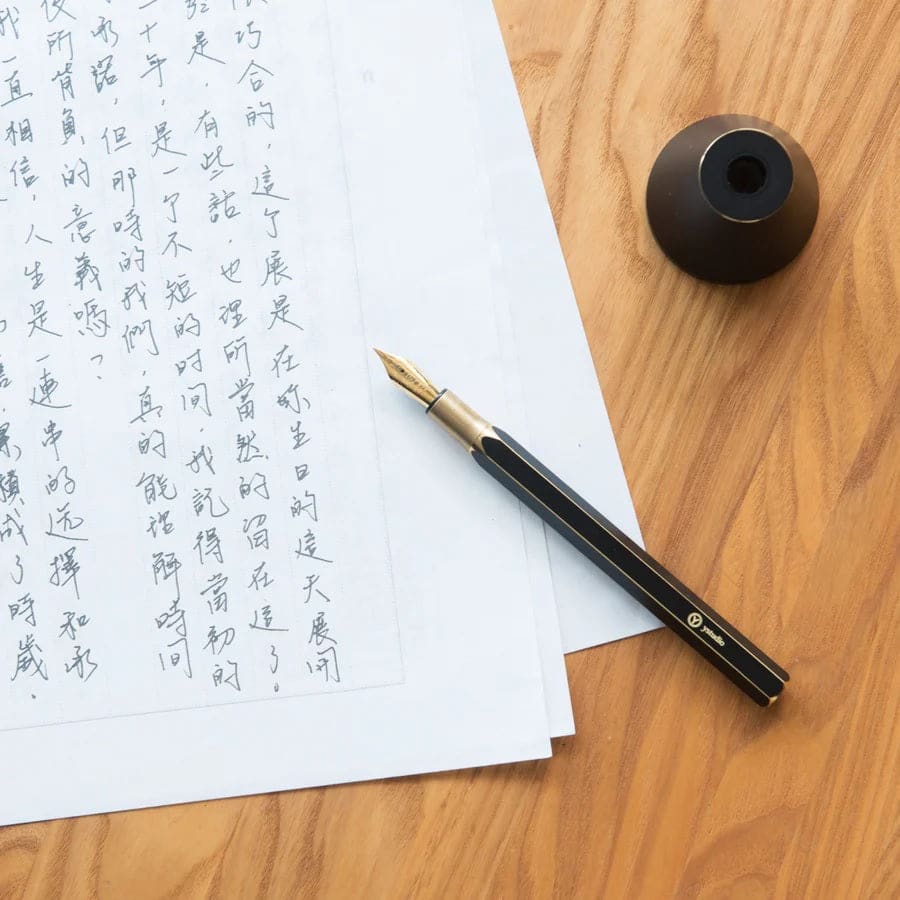 巧合的，這个展是在你生日的這天展開
是，有些話，也理所當然的留在這了。
十年，是一个不短的时间，我記得當初的
承諾，但那時的我們，真的能理解時间
所背負的意義嗎？
我一直相信，人生是一連串的选擇和承
累積成了時歲，
ystudio